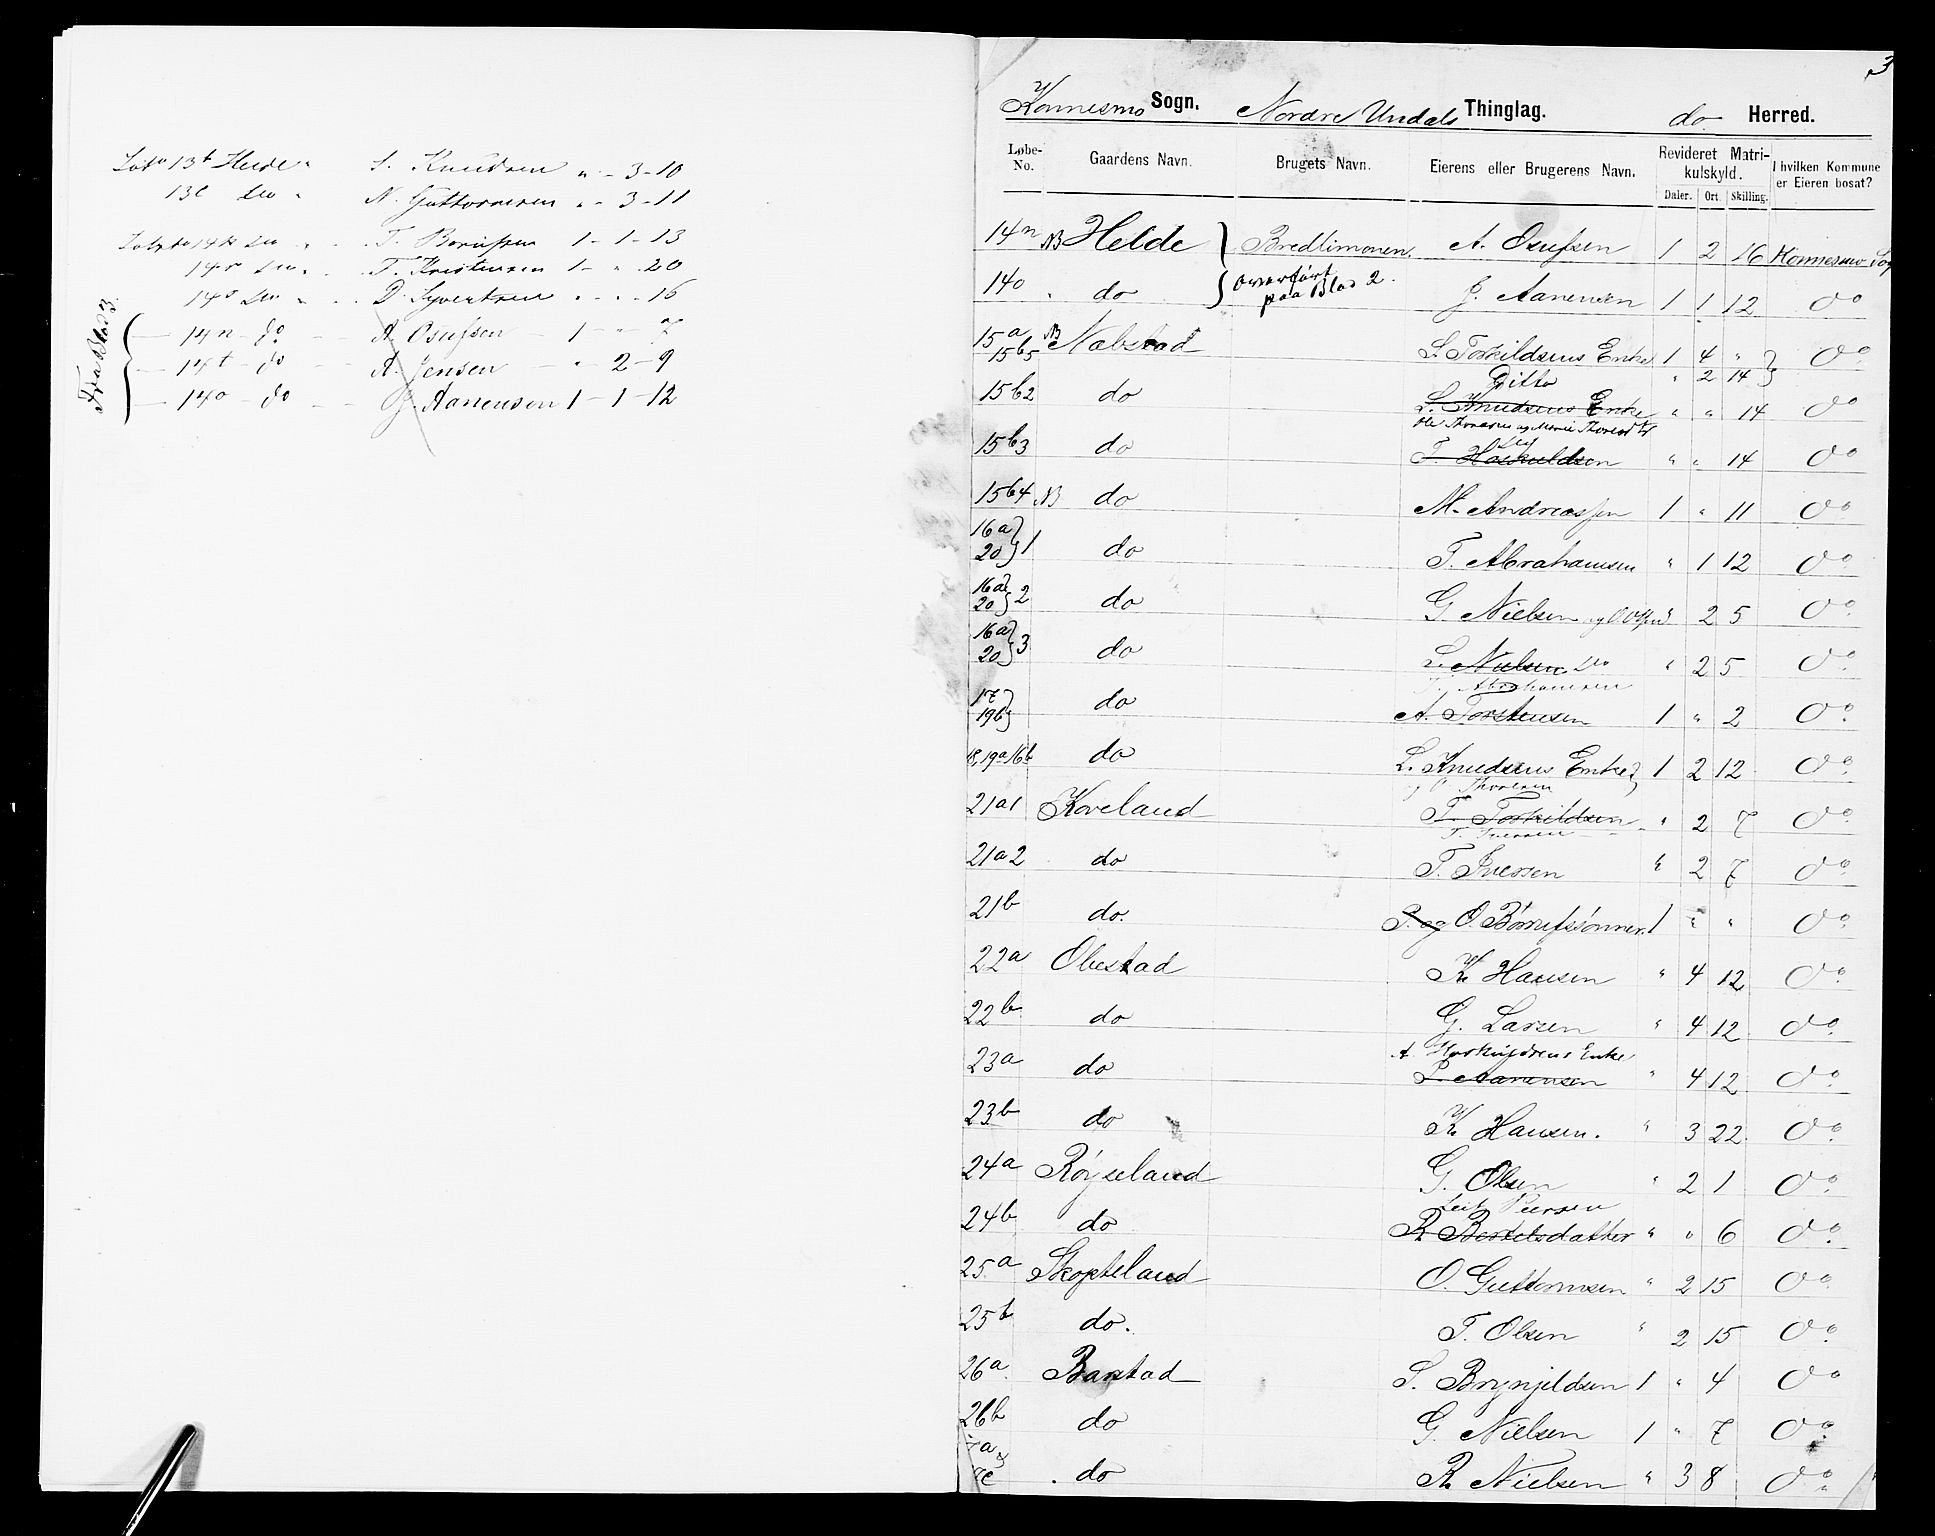 13b Helde " S. Knudsen " - 3 - 10
13c do " N. Guttormsen " - 3 - 11
14 do " T. Børufsen 1 - 1 - 13
14 do " T. Kristensen 1 - " - 20
14 do " D. Syvertsen " - " - 16
Fra Blad 3
14n - do - A. Osufsen 1 - " - 7
14t - do - A. Jensen - " - 2 - 9
14o - do - J. Aanensen 1 - 1 - 12
3
Konnesmo Sogn. Nordre Undals Thinglag. do Herred.
Løbe-No. Gaardens Navn. Brugets Navn. Eierens eller Brugerens Navn. Revideret Matrikulskyld. I hvilken Kommune er Eieren bosat?
Daler. Ort. Skilling.
14n NB Helde } Bredlimonen. A. Osufsen 1 2 16 Konnesmo Sogn
14o " do } Overført paa Blad 2. J. Aanensen 1 1 12 Do
15a 15b5 NB Nabstad L. Torkildsens Enke 1 4 " } Do
Ditto " 2 14 }
15b2 do L. Knudsens Enke " " 14 Do
Ole Thoresen og Marie Thoresdtr
15b3 do T. Haskuldsen " " 14 Do
15b4 NB do M. Andreassen 1 " 11 Do
16a 20 } 1 do T. Abrahamsen " 1 12 Do
16a 20 } 2 do G. Nielsen og O. Olsen " 2 5 Do
16a 20 } 3 do L. Nielsen do " 2 5 Do
T. Abrahamsen
17 19b } do A. Torstensen 1 " 2 Do
18, 19a 16b do L. Knudsens Enke 1 2 12 Do
og O. Thoresen
21a1 Koveland T. Torkildsen " 2 7 Do
T. Iversen
21a2 do T. Iversen " 2 7 Do
21b do. P. og O. Børrufssønner 1 " " Do
22a Obestad K. Hansen " 4 12 Do
22b do G. Larsen " 4 12 Do
A. Haskuldsens Enke
23a do P. Aanensen " 4 12 Do
23b do K. Hansen. " 3 22 Do
24a Røyseland G. Olsen " 2 1 Do
Peersen
24b do R. Bertelsdatter " " 6 Do
25a Skopteland O. Guttormsen " 2 15 Do
25b do. T. Olsen " 2 15 Do
26a Barstad S. Brynjeldsen 1 " 4 Do
26b do G. Nielsen 1 " 7 Do
do R. Nielsen " 3 8 Do